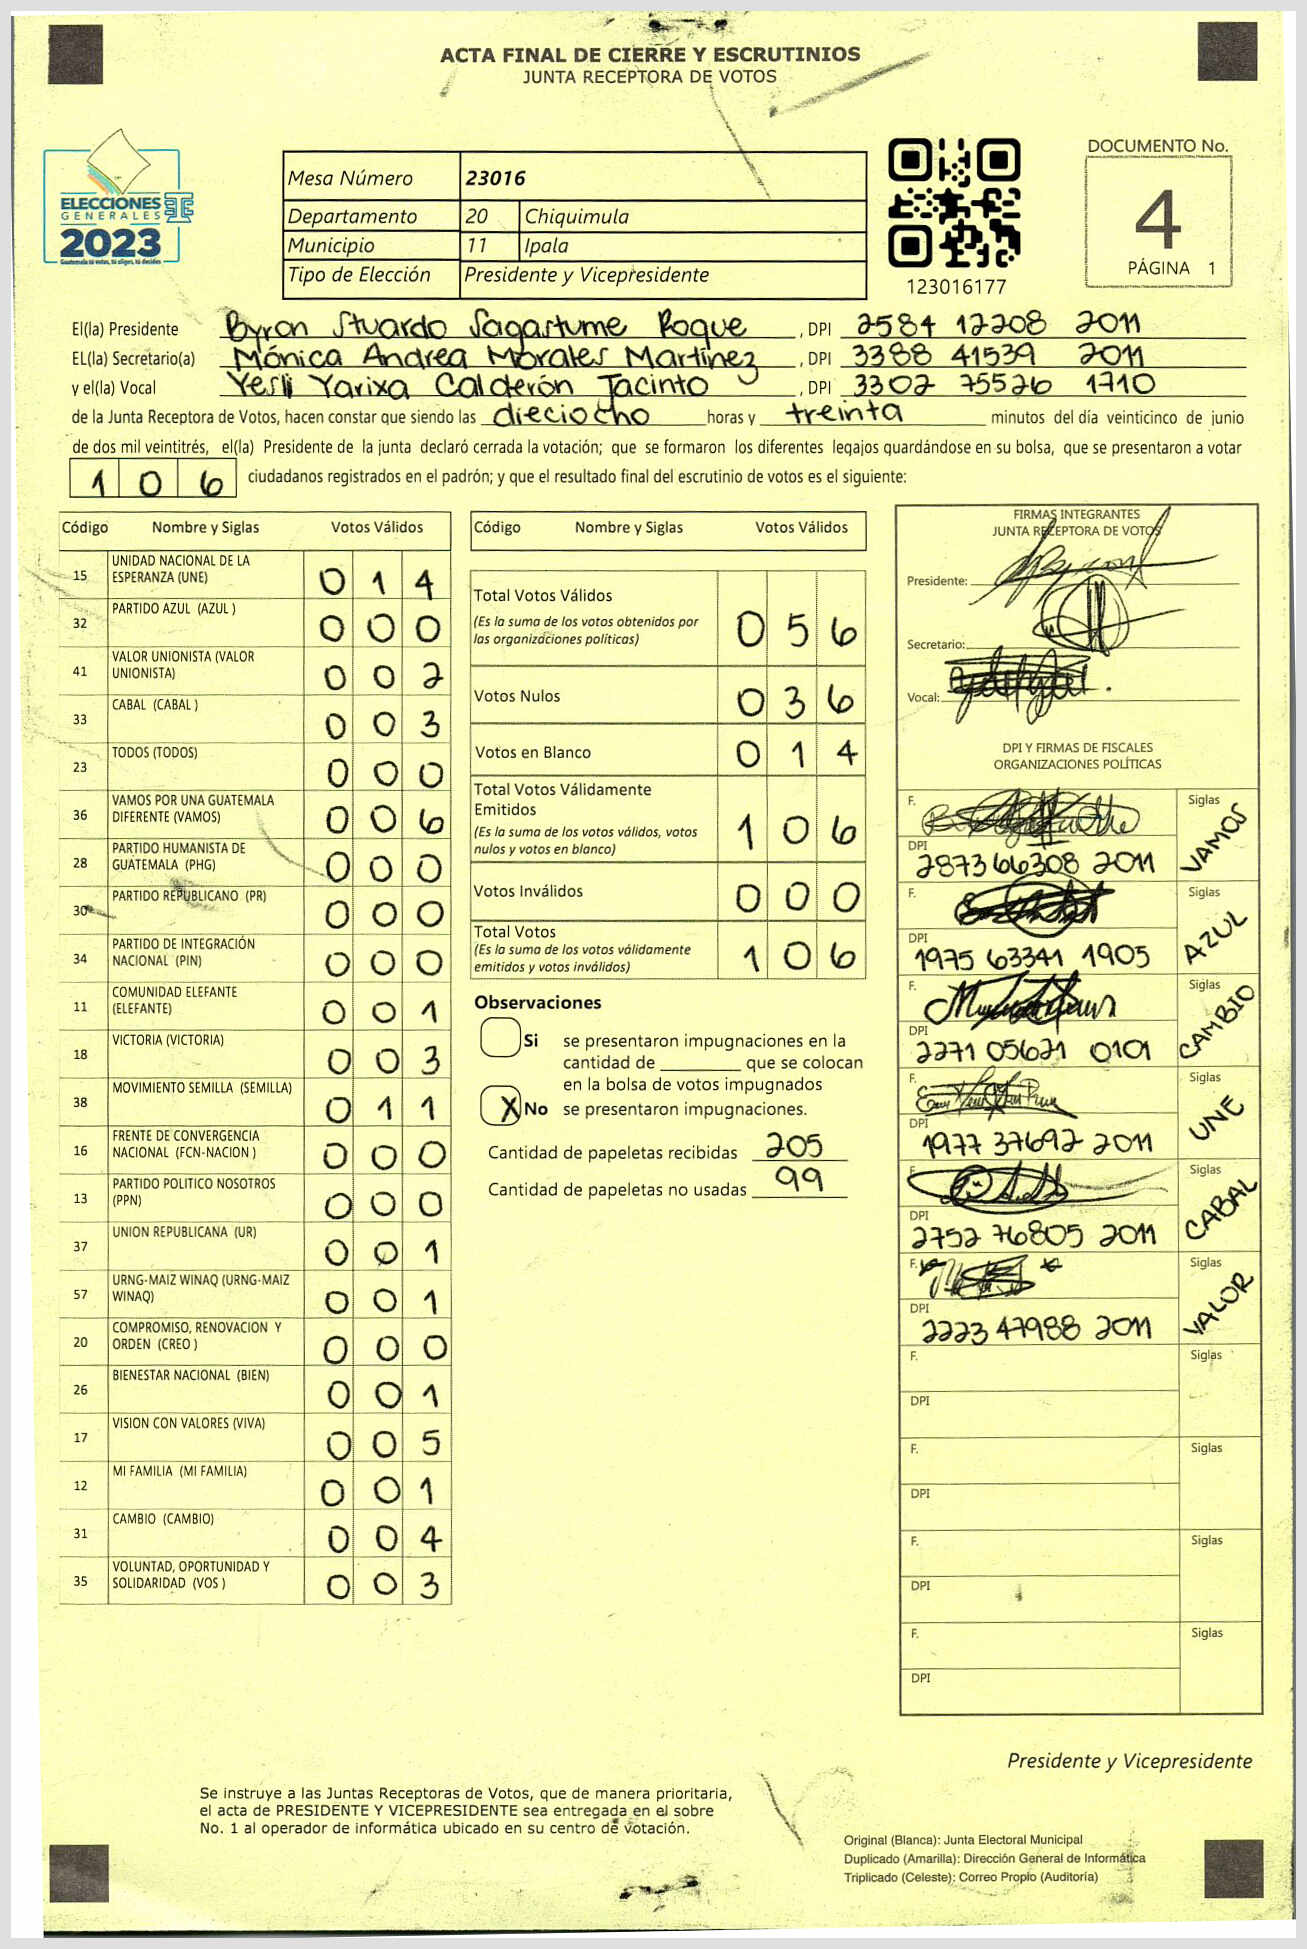 ACTA FINAL DE CIERRE Y ESCRUTINIOS
JUNTA RECEPTORA DE VOTOS
ELECCIONES
GENERALES
2023
Guatemala tú votas, tú eliges, tú decides
Mesa Número 23016
Departamento 20 Chiquimula
Municipio 11 Ipala
Tipo de Elección Presidente y Vicepresidente
123016177
DOCUMENTO No.
4
PÁGINA 1
El(la) Presidente Byron Stuardo Sagastume Roque, DPI 2584 12208 2011
EL(la) Secretario(a) Mónica Andrea Morales Martínez, DPI 3388 41539 2011
y el(la) Vocal Yesli Yarixa Calderón Jacinto, DPI 3302 75526 1710
de la Junta Receptora de Votos, hacen constar que siendo las dieciocho horas y treinta minutos del día veinticinco de junio
de dos mil veintitrés, el(la) Presidente de la junta declaró cerrada la votación; que se formaron los diferentes legajos guardándose en su bolsa, que se presentaron a votar
1 0 6 ciudadanos registrados en el padrón; y que el resultado final del escrutinio de votos es el siguiente:
Código Nombre y Siglas Votos Válidos
15 UNIDAD NACIONAL DE LA ESPERANZA (UNE) 0 1 4
32 PARTIDO AZUL (AZUL ) 0 0 0
41 VALOR UNIONISTA (VALOR UNIONISTA) 0 0 2
33 CABAL (CABAL ) 0 0 3
23 TODOS (TODOS) 0 0 0
36 VAMOS POR UNA GUATEMALA DIFERENTE (VAMOS) 0 0 6
28 PARTIDO HUMANISTA DE GUATEMALA (PHG) 0 0 0
30 PARTIDO REPUBLICANO (PR) 0 0 0
34 PARTIDO DE INTEGRACIÓN NACIONAL (PIN) 0 0 0
11 COMUNIDAD ELEFANTE (ELEFANTE) 0 0 1
18 VICTORIA (VICTORIA) 0 0 3
38 MOVIMIENTO SEMILLA (SEMILLA) 0 1 1
16 FRENTE DE CONVERGENCIA NACIONAL (FCN-NACION ) 0 0 0
13 PARTIDO POLITICO NOSOTROS (PPN) 0 0 0
37 UNION REPUBLICANA (UR) 0 0 1
57 URNG-MAIZ WINAQ (URNG-MAIZ WINAQ) 0 0 1
20 COMPROMISO, RENOVACION Y ORDEN (CREO ) 0 0 0
26 BIENESTAR NACIONAL (BIEN) 0 0 1
17 VISION CON VALORES (VIVA) 0 0 5
12 MI FAMILIA (MI FAMILIA) 0 0 1
31 CAMBIO (CAMBIO) 0 0 4
35 VOLUNTAD, OPORTUNIDAD Y SOLIDARIDAD (VOS ) 0 0 3
Código Nombre y Siglas Votos Válidos
Total Votos Válidos 0 5 6
(Es la suma de los votos obtenidos por
las organizaciones políticas)
Votos Nulos 0 3 6
Votos en Blanco 0 1 4
Total Votos Válidamente
Emitidos 1 0 6
(Es la suma de los votos válidos, votos
nulos y votos en blanco)
Votos Inválidos 0 0 0
Total Votos 1 0 6
(Es la suma de los votos válidamente
emitidos y votos inválidos)
Observaciones
Si se presentaron impugnaciones en la
cantidad de ________ que se colocan
en la bolsa de votos impugnados
X No se presentaron impugnaciones.
Cantidad de papeletas recibidas 205
Cantidad de papeletas no usadas 99
FIRMAS INTEGRANTES
JUNTA RECEPTORA DE VOTOS
Presidente:
Secretario:
Vocal:
DPI Y FIRMAS DE FISCALES
ORGANIZACIONES POLÍTICAS
F. Siglas VAMOS
DPI 2873 66308 2011
F. Siglas AZUL
DPI 1975 63341 1905
F. Siglas CAMBIO
DPI 2271 05621 0101
F. Siglas UNE
DPI 1977 37692 2011
F. Siglas CABAL
DPI 2752 76805 2011
F. Siglas VALOR
DPI 2223 47988 2011
F. Siglas
DPI
F. Siglas
DPI
F. Siglas
DPI
F. Siglas
DPI
Presidente y Vicepresidente
Se instruye a las Juntas Receptoras de Votos, que de manera prioritaria,
el acta de PRESIDENTE Y VICEPRESIDENTE sea entregada en el sobre
No. 1 al operador de informática ubicado en su centro de votación.
Original (Blanca): Junta Electoral Municipal
Duplicado (Amarilla): Dirección General de Informática
Triplicado (Celeste): Correo Propio (Auditoría)